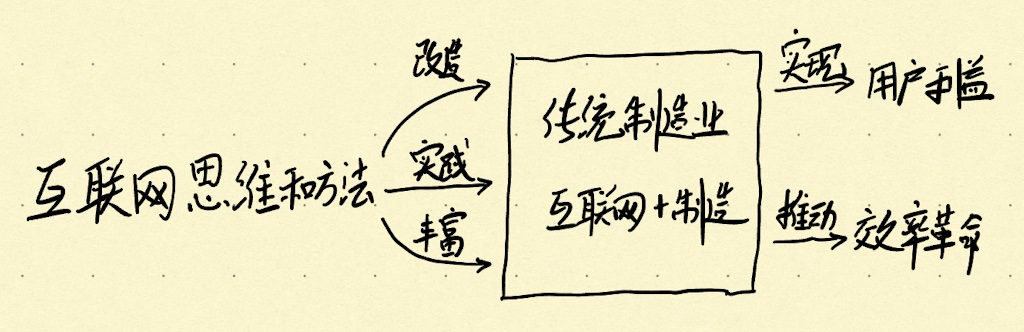 互联网思维和方法
改造
实践
丰富
传统制造业
互联网+制造
实现
用户利益
推动
效率革命